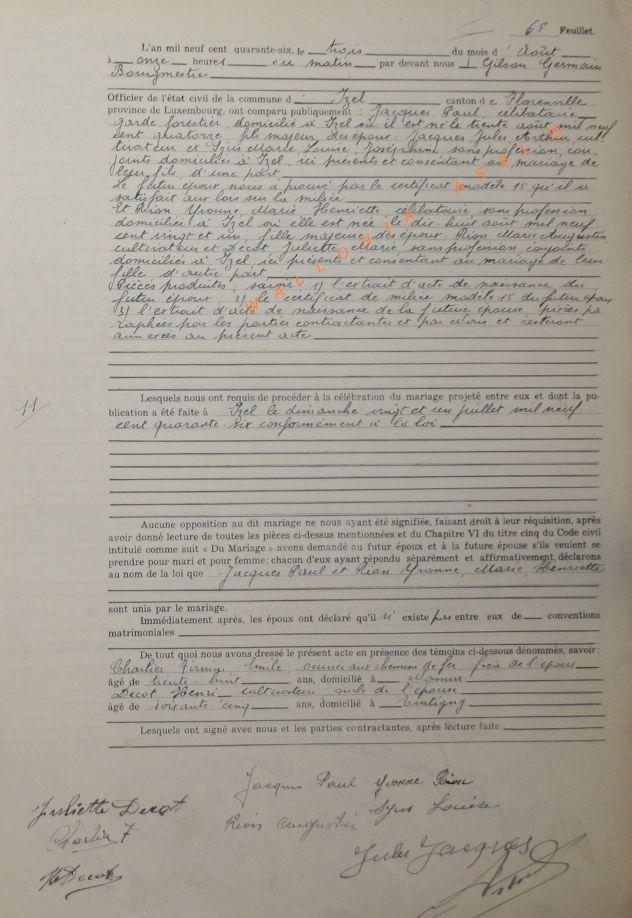 68 Feuillet.
L'an mil neuf cent quarante-six, le trois du mois d' Août
à onze heures du matin par devant nous Gilson Germain
Bourgmestre
Officier de l'état civil de la commune d' Izel canton de Florenville
province de Luxembourg, ont comparu publiquement : Jacques Paul, célibataire
garde forestier, domicilié à Izel où il est né le trente août mil neuf
cent quatorze, fils majeur des époux Jacques Jules Arthur cul
tivateur et Marie, Louise, Joséphine sans profession, con
joints domiciliés à Izel, ici présents et consentant au mariage de
leur fils, d'une part
Le futur époux nous a prouvé par le certificat modèle 15 qu'il a
satisfait aux lois sur la milice
Et Rion Yvonne, Marie Henriette célibataire sans profession
domiciliée à Izel où elle est née le dix huit août mil neuf
cent vingt et un, fille majeure des époux Rion Marie Augustin
cultivateur et Decot Juliette Marie sans profession conjoints
domiciliés à Izel ici présents et consentant au mariage de leur
fille d'autre part
Pièces produites, savoir : 1) l'extrait d'acte de naissance du
futur époux, le certificat de milice modèle 15 du futur époux
3) l'extrait d'acte de naissance de la future épouse, pièces pa
raphées par les parties contractantes et par Nous et resteront
annexées au présent acte
WALLONIA ASBL
11
Lesquels nous ont requis de procéder à la célébration du mariage projeté entre eux et dont la pu-
blication a été faite à Izel le dimanche vingt et un juillet mil neuf
cent quarante-six conformément à la loi
Aucune opposition au dit mariage ne nous ayant été signifiée, faisant droit à leur réquisition, après
avoir donné lecture de toutes les pièces ci-dessus mentionnées et du Chapitre VI du titre cinq du Code civil
intitulé comme suit « Du Mariage » avons demandé au futur époux et à la future épouse s'ils veulent se
prendre pour mari et pour femme; chacun d'eux ayant répondu séparément et affirmativement, déclarons
au nom de la loi que Jacques Paul et Rion Yvonne, Marie Henriette
sont unis par le mariage.
Immédiatement après, les époux ont déclaré qu'il n' existe pas entre eux de conventions
matrimoniales
De tout quoi nous avons dressé le présent acte en présence des témoins ci-dessous dénommés, savoir :
Charlier Firmin, Emile, ouvrier aux chemins de fer, de l'époux
âgé de trente-huit ans, domicilié à Namur
Decot Henri cultivateur oncle de l'épouse
âgé de soixante-cinq ans, domicilié à Tintigny
Lesquels ont signé avec nous et les parties contractantes, après lecture faite
Jacques Paul Yvonne Rion
Juliette Decot
Rion Augustin Louise
Charlier F
Jules Jacques
H Decot